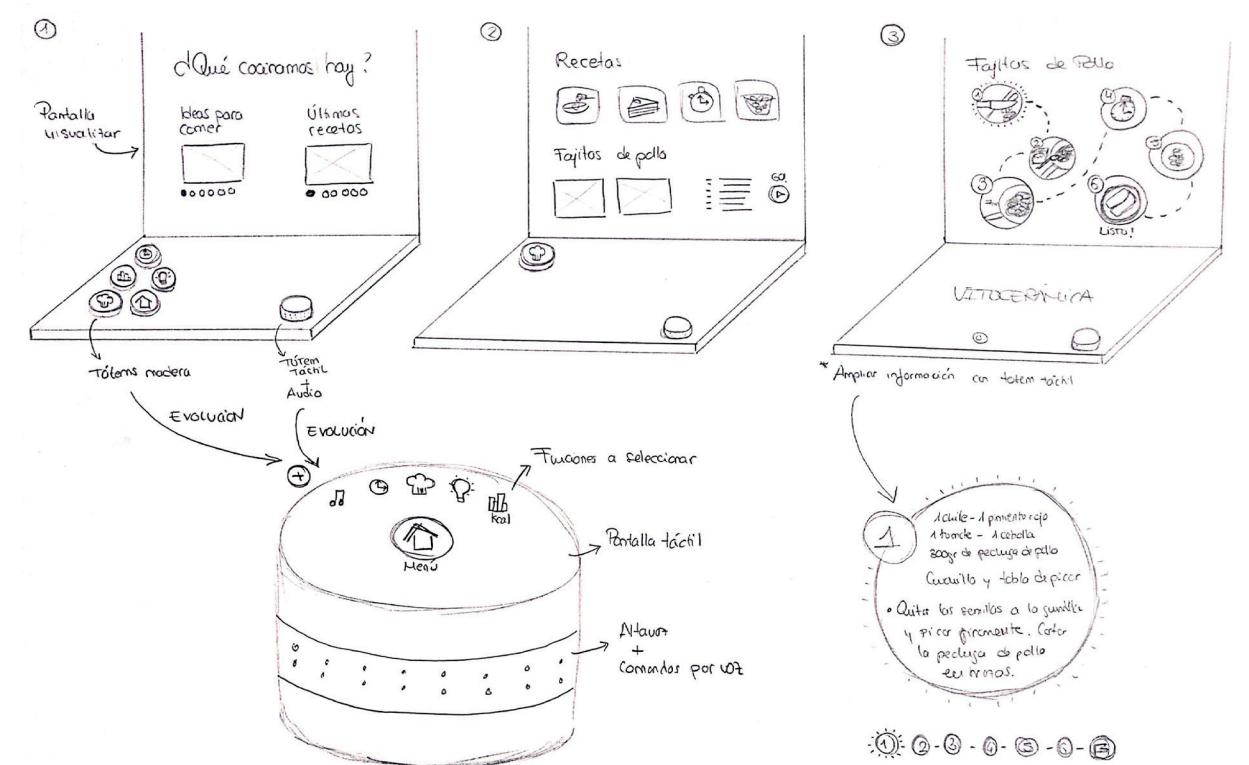 1
¿Qué cocinamos hoy?
Pantalla visualizar
Ideas para comer
Últimas recetas
Tótems madera
Tótem táctil + Audio
EVOLUCIÓN
EVOLUCIÓN
2
Recetas
Fajitas de pollo
GO
3
Fajitas de Pollo
1
2
3
4
5
6
Listo!
VITOCERÁMICA
* Ampliar información con totem táctil
+
Funciones a seleccionar
kcal
Menú
Pantalla táctil
Altavoz
+
Comandos por voz
1
1 chile - 1 pimiento rojo
1 tomate - 1 cebolla
300gr de pechuga de pollo
Cuchillo y tabla de picar
• Quitar las semillas a la
y picar finamente. Cortar
la pechuga de pollo
en
1 - 2 - 3 - 4 - 5 - 6 -